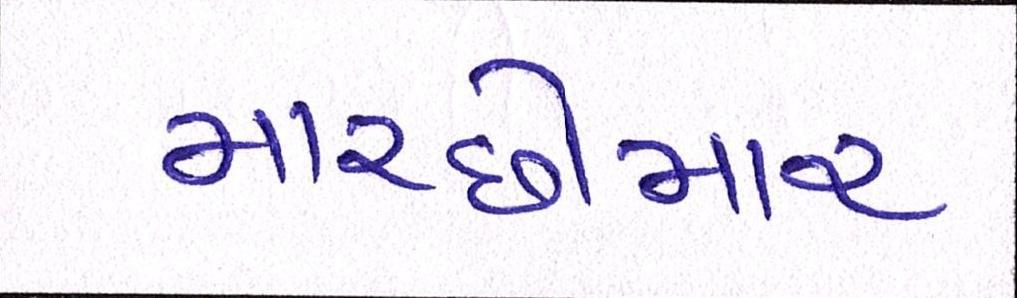 મારછીમાર